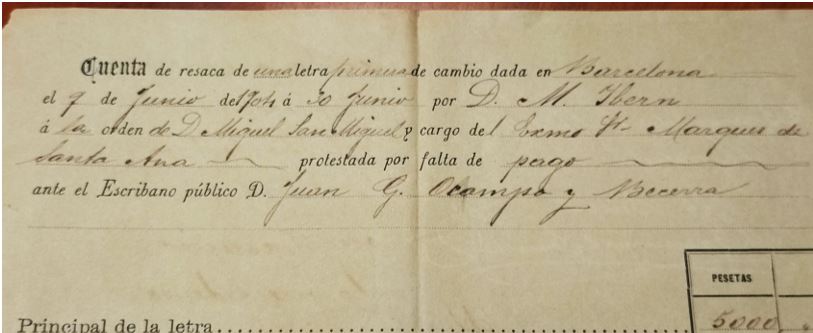 Cuenta de resaca de una letra primera de cambio dada en Barcelona
el 9 de Junio de 1904 á 30 Junio por D. M. Ibern
á la orden de D Miguel San Miguel y cargo del Exmo Sr. Marques de
Santa Ana protestada por falta de pago
ante el Escribano público D. Juan G. Ocampo y Becerra
PESETAS
Principal de la letra 5000